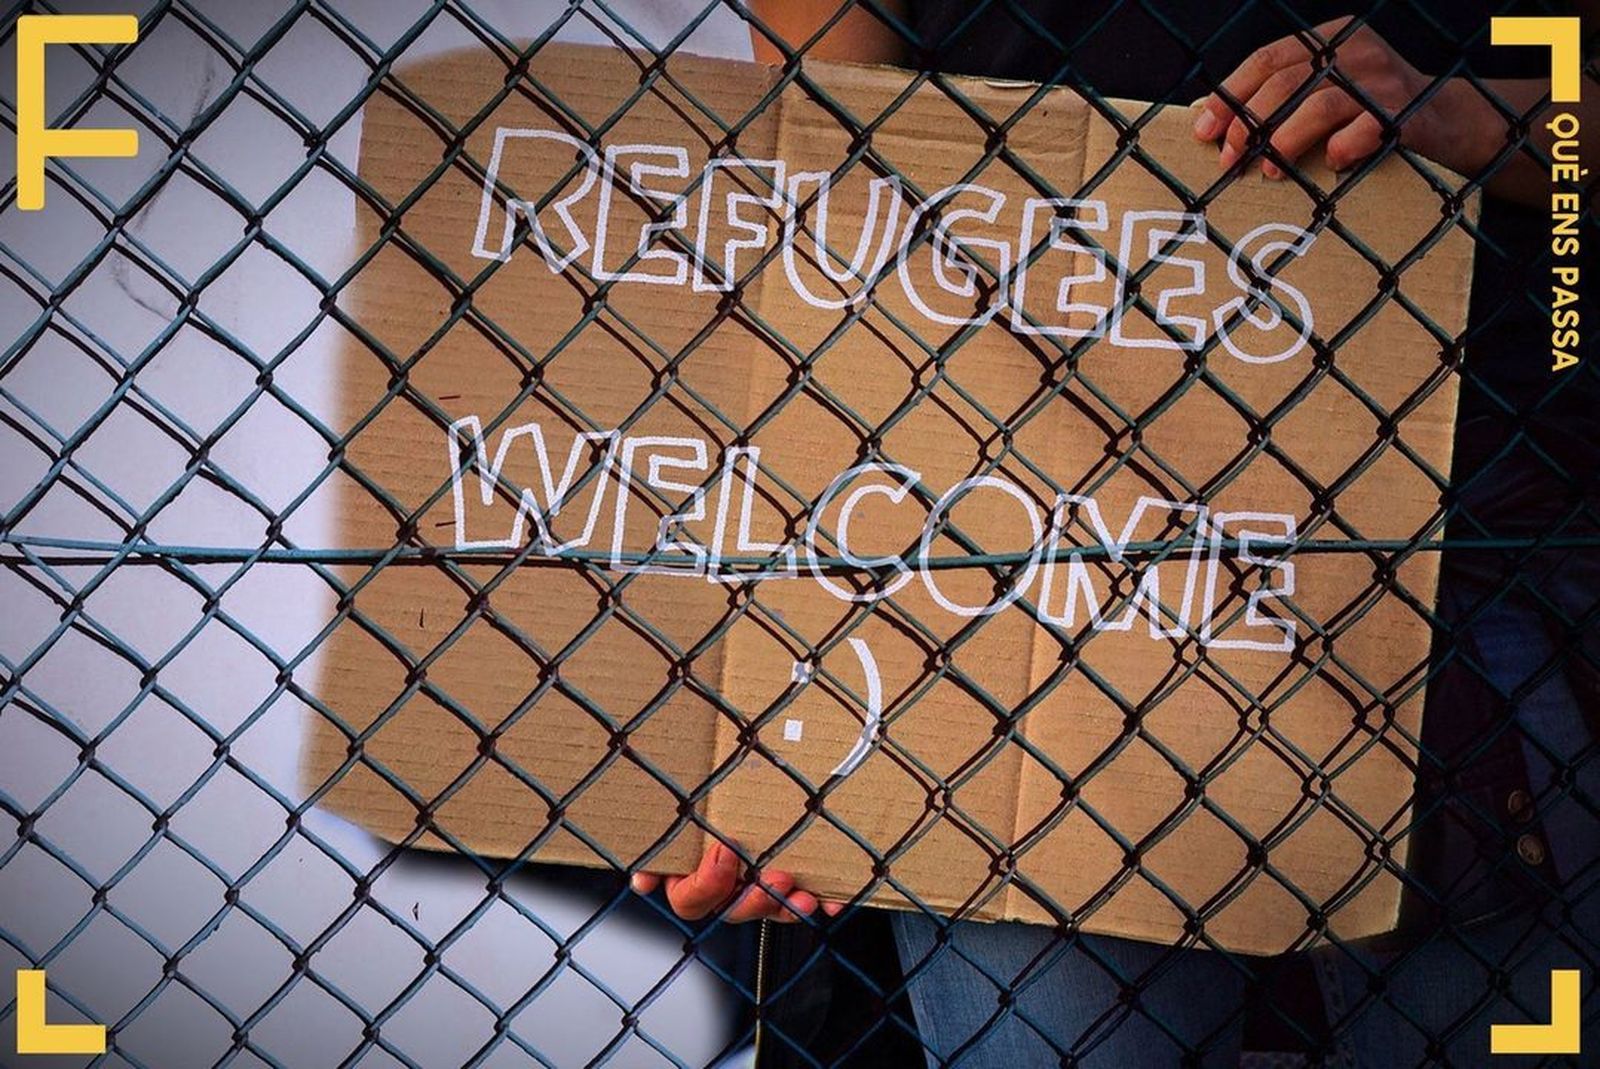 F
QUÈ ENS PASSA
REFUGEES
WELCOME
:)